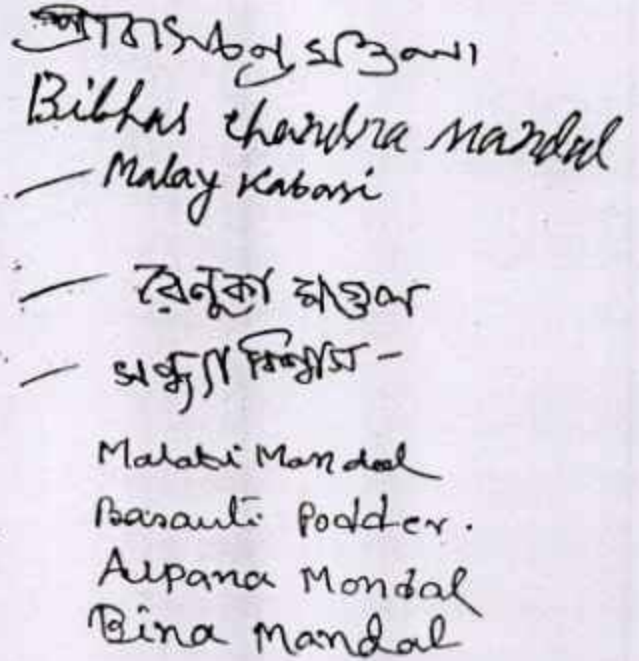 শ্রী রামচন্দ্র মণ্ডল।
Bibhas Chandra Mandal
— Malay Kabasi
— রেনুকা মণ্ডল
— সন্ধ্যা বিশ্বাস –
Malati Mandal
Basanti Podder.
Alpana Mondal
Bina Mandal